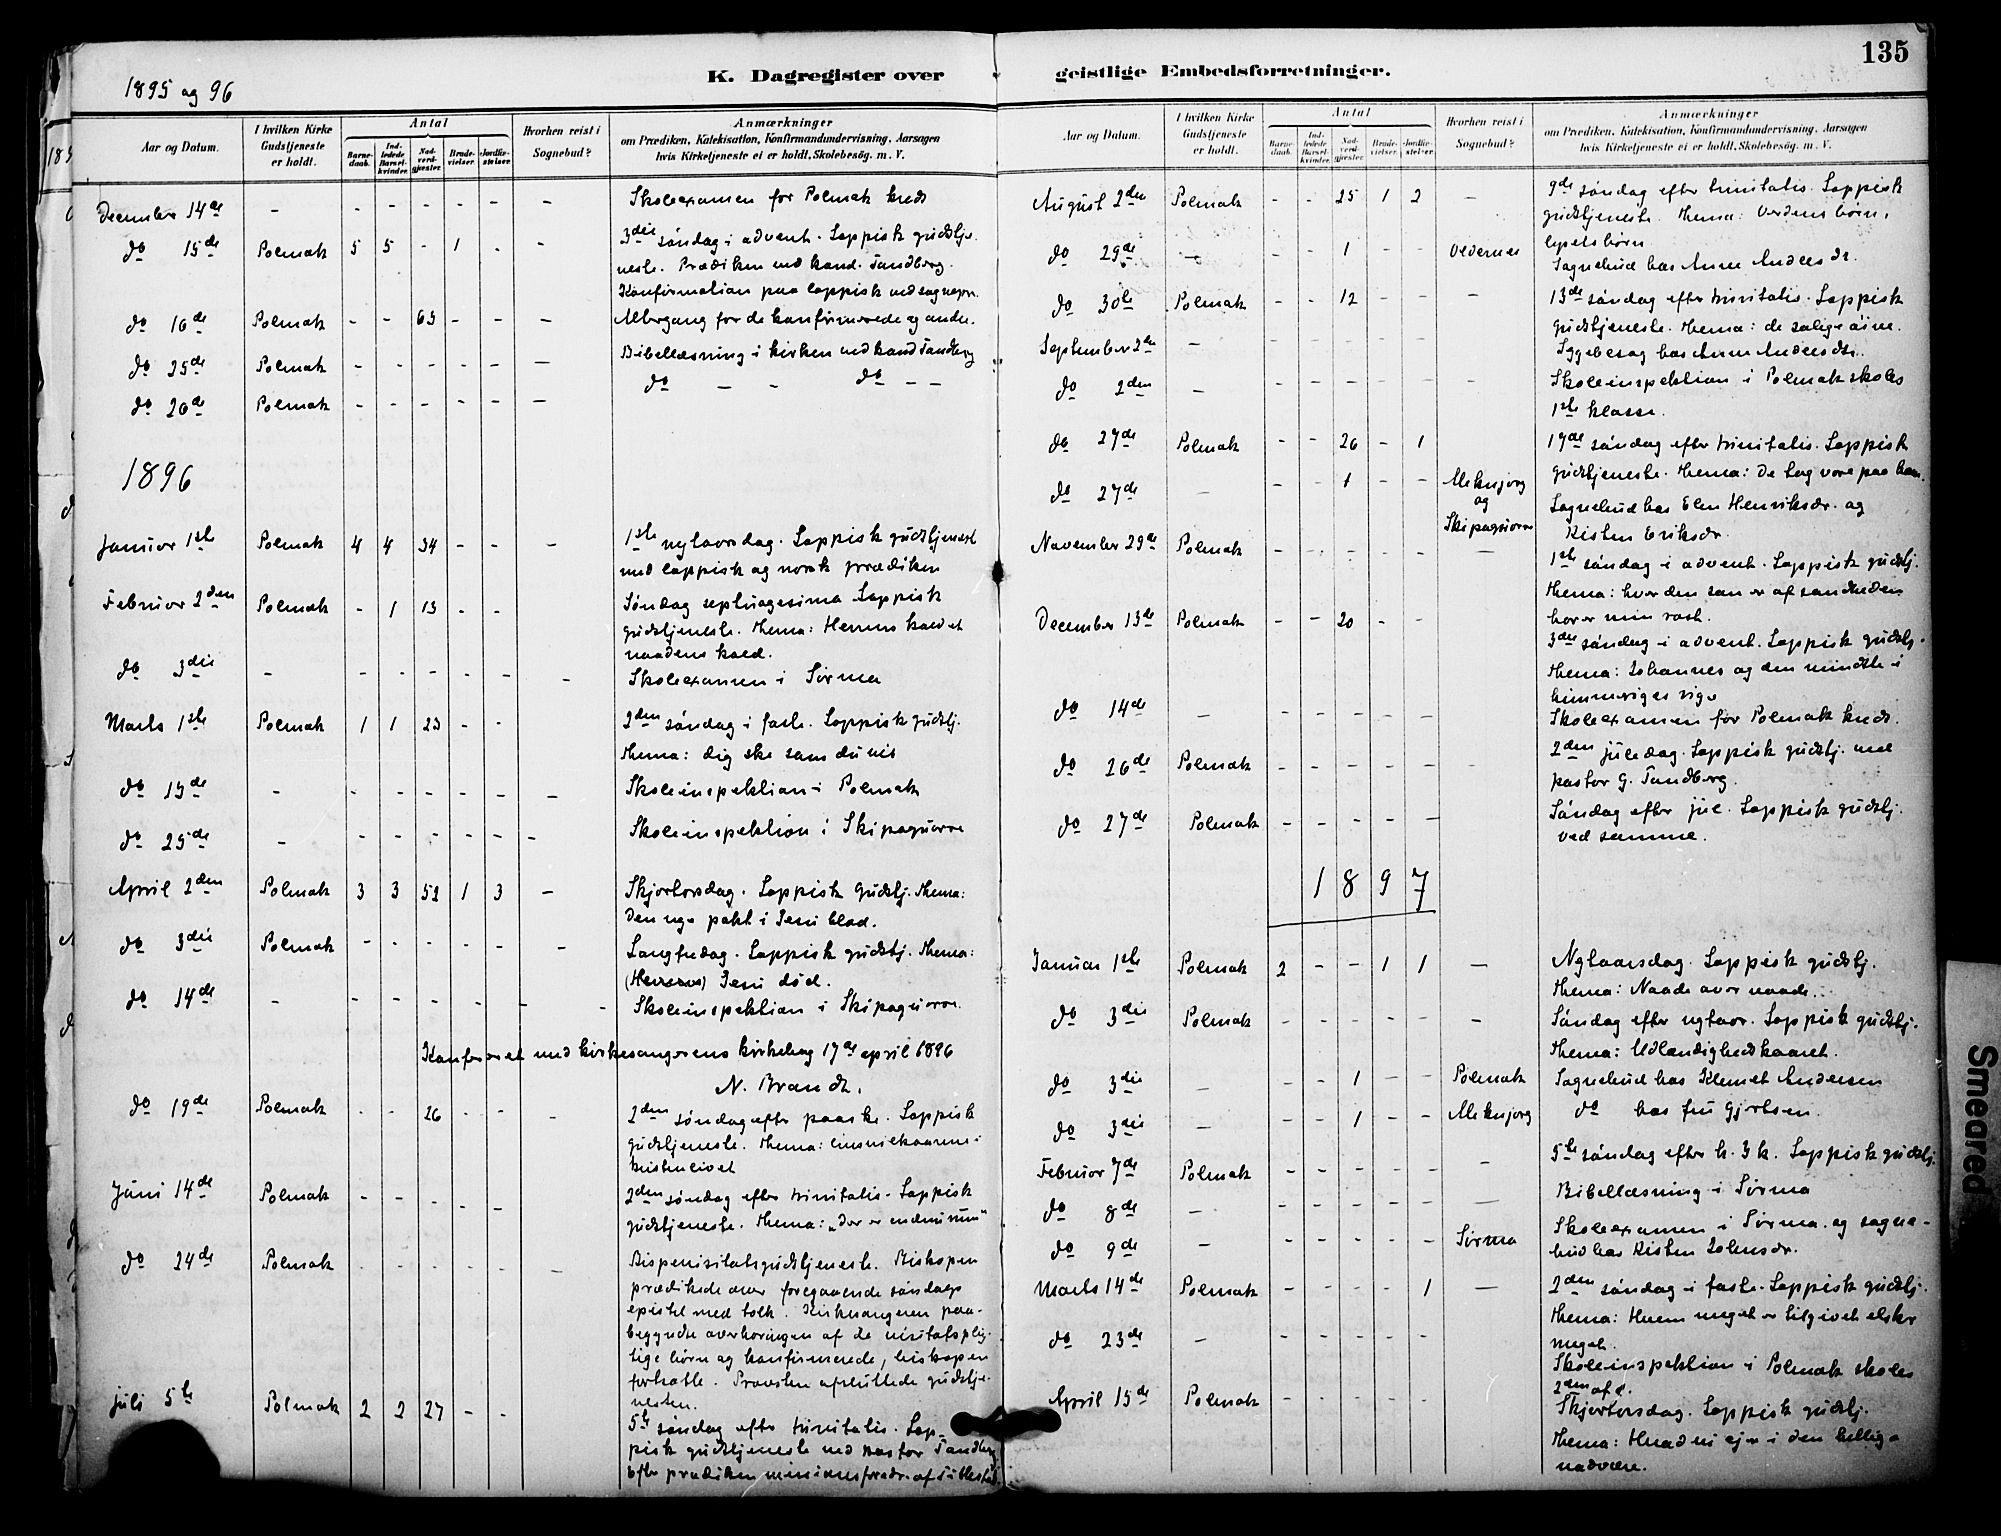 135
1895 og 96
K. Dagregister over
geistlige Embedsforretninger.
Aar og Datum.
I hvilken Kirke Gudstjeneste er holdt.
Antal
Barnedaab.
Indledede Barselkvinder.
Nadverdgjester.
Brudevielser.
Jordfæstelser.
Hvorhen reist i Sognebud?
Anmærkninger
om Prædiken, Katekisation, Konfirmandundervisning, Aarsagen
hvis Kirketjeneste ei er holdt, Skolebesög. m. V.
December 14de - - - - - - - Skoleexamen for Polmak kreds
do 15de Polmak 5 5 - 1 - - 3die søndag i advent. Lappisk gudstje-
neste. Prædiken ved kand. Tandberg.
Konfirmation paa lappisk ved sognepr.
do 16de Polmak - - 63 - - - Altergang for de konfirmerede og andre.
do 25de Polmak - - - - - - Bibellæsning i kirken ved kand Tandberg
do 26de Polmak - - - - - - do - - do - -
1896
Januar 1ste Polmak 4 4 34 - - - 1ste nytaarsdag. Lappisk gudstjeneste
med lappisk og norsk prædiken
Februar 2den Polmak - 1 13 - - Søndag septuagesima Lappisk
gudstjeneste. Thema: Herrens kald et
naadens kald.
do 3die - - - - - - - Skoleexamen i Sirma
Marts 1ste Polmak 1 1 23 - - 2den søndag i faste. Lappisk gudstj.
Thema: dig ske som du vil
do 13de - - - - - - - Skoleinspektion i Polmak
do 25de - - - - - - - Skoleinspektion i Skipaguorra
April 2den Polmak 3 3 52 1 3 - Skjærtorsdag. Lappisk gudstj. Thema:
Den nye pakt i Jesu blod.
do 3die Polmak - - - - - - Langfredag. Lappisk gudstj. Thema:
(Herrens) Jesu død.
do 14de - - - - - - - Skoleinspektion i Skipaguorra
Konfereret med kirkesangerens kirkebog 17de april 1896
N. Brandt.
do 19de Polmak - - 26 - - - 2den søndag efter paaske. Lappisk
gudstjeneste. Thema: livsvilkaarene i
kristenlivet
Juni 14de Polmak - - - - - 2den søndag efter trinitatis. Lappisk
gudstjeneste. Thema: „Der er endnu rum"
do 24de Polmak - - - - - - Bispevisitatsgudstjeneste. Biskopen
prædikede over foregaaende søndags
epistel med tolk. Kirkesangeren paa-
begyndte overhøringen af de visitatsplig-
tige børn og konfirmerede, biskopen
fortsatte. Provsten afsluttede gudstje-
nesten.
juli 5te Polmak 2 2 27 - - 5te søndag efter trinitatis. Lap-
pisk gudstjeneste ved pastor Tandberg
Efter prædiken missionsforedr. af
Aar og Datum.
I hvilken Kirke Gudstjeneste er holdt.
Antal
Barnedaab.
Indledede Barselkvinder.
Nadverdgjester.
Brudevielser.
Jordfæstelser.
Hvorhen reist i Sognebud?
Anmærkninger
om Prædiken, Katekisation, Konfirmandundervisning, Aarsagen
hvis Kirketjeneste ei er holdt, Skolebesög. m. V.
August 2den Polmak - - 25 1 2 - 9de søndag efter trinitatis. Lappisk
gudstjeneste. Thema: Verdens børn,
lysets børn
do 29de - - - 1 - - Vedernes Sognebud hos Anne Andersdr.
do 30te Polmak - - 12 - - - 13de søndag efter trinitatis. Lappisk
gudstjeneste. Thema: de salige øine.
September 2den - - - - - - Sygebesøg hos Anne Andersdtr.
do 2den - - - - - - - Skoleinspektion i Polmak skoles
1ste klasse.
do 27de Polmak - - 26 - 1 17de søndag efter trinitatis. Lappisk
gudstjeneste. Thema: De tog vare paa ham.
do 27de - - - 1 - - Aleknjarg og Skipaguorra Sognebud hos Elen Henriksdr. og
Kisten Eriksdr.
November 29de Polmak - - - - - - 1ste søndag i advent. Lappisk gudstj.
Thema: hver den som er af sandheden
hører min røst.
December 13de Polmak - - 20 - - 3die søndag i advent. Lappisk gudstj.
Thema: Johannes og den mindste i
himmeriges rige
do 14de - - - - - - - Skoleexamen for Polmak kreds.
do 26de Polmak - - - - - - 2den juledag. Lappisk gudstj. ved
pastor G. Tandberg.
do 27de Polmak - - - - - Søndag efter jul. Lappisk gudstj.
ved samme.
1897
Januar 1ste Polmak 2 - - 1 1 - Nytaarsdag. Lappisk gudstj.
Thema: Naade over naade.
do 3die Polmak - - - - - - Søndag efter nytaar. Lappisk gudstj.
Thema: Udlændighedkaaret.
do 3die - - - 1 - - Polmak Sognebud hos Klemet Andersen
do 3die - - - 1 - - Aleknjarg do hos fru Gjertsen.
Februar 7de Polmak - - - - - - 5te søndag efter h. 3 k. Lappisk gudstj.
do 8de - - - - - - - Bibellæsning i Sirma
do 9de - - - - - - Sirma Skoleexamen i Sirma og sogne-
bud hos Kisten Johnsdr.
Marts 14de Polmak - - - - 1 - 2den søndag i faste. Lappisk gudstj.
Thema: Hvem meget er tilgivet elsker
meget.
do 23de - - - - - - Skoleinspektion i Polmak skoles
2den afd.
April 15de Polmak - - - - - Skjærtorsdag. Lappisk gudstj.
Thema: Hvad vi ejer i den hellige
nadvere.
Smeared